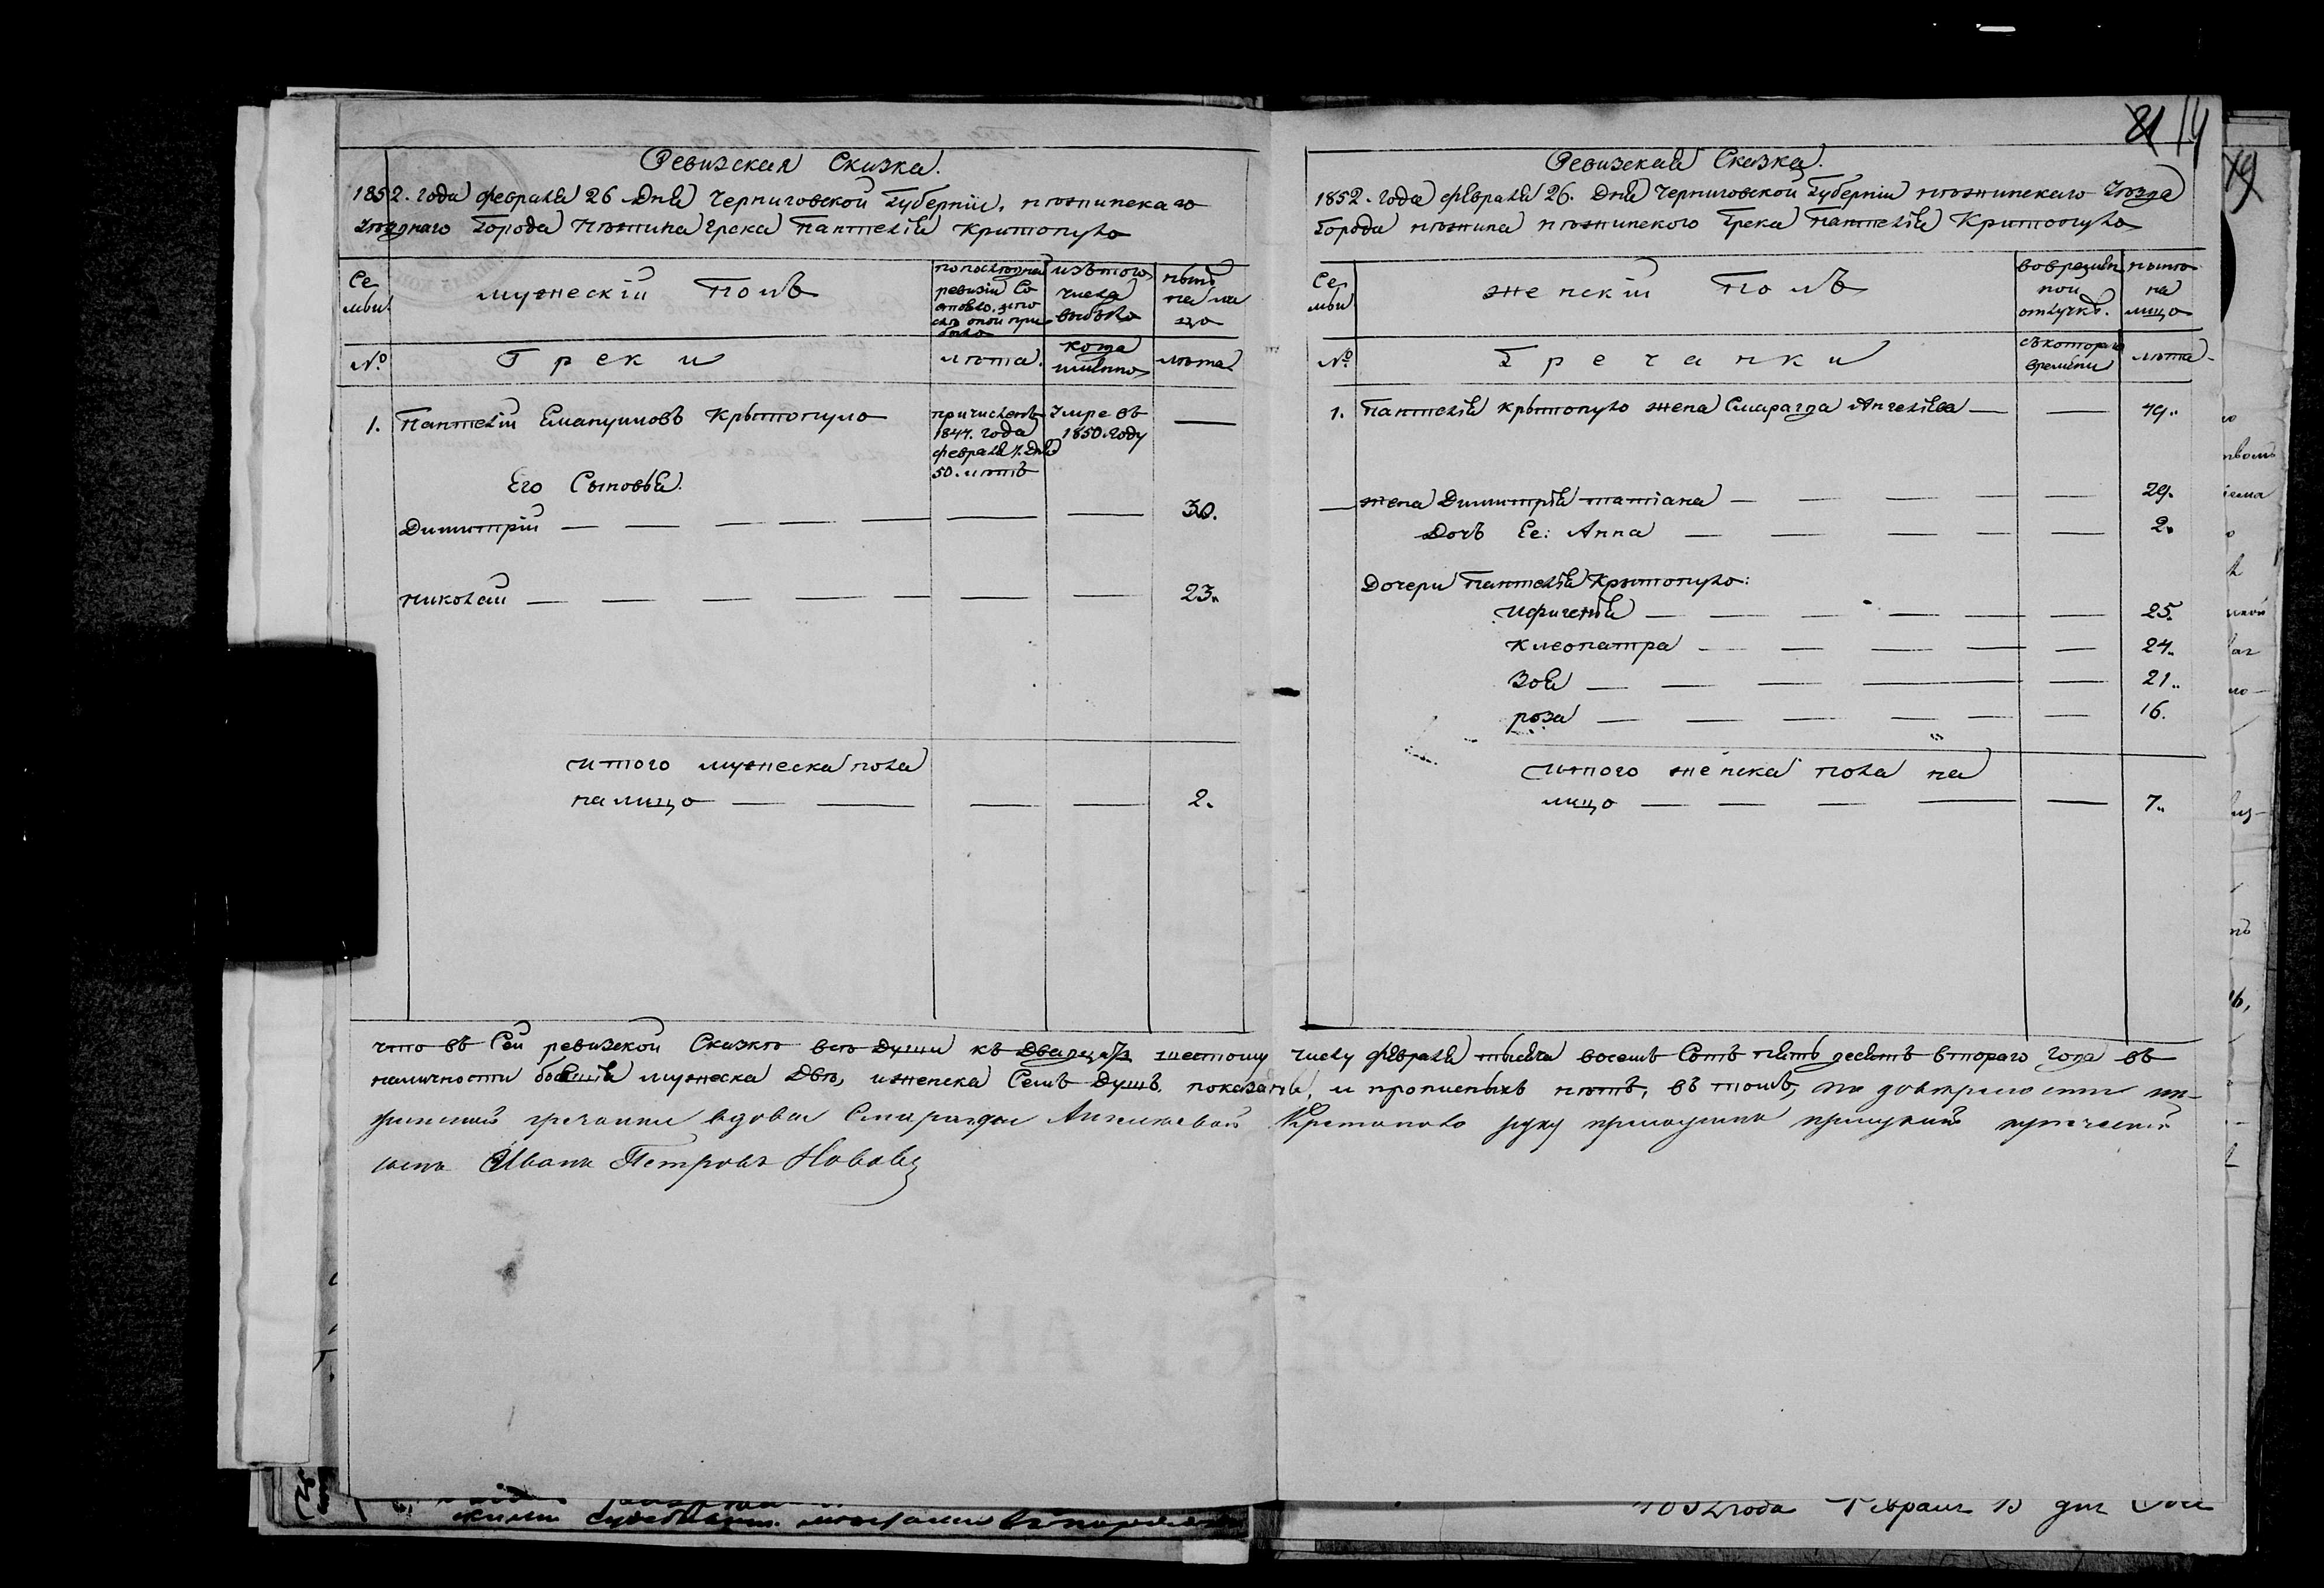 Ревизская Сказка.
1852. года февраля 26 Дня Черниговской Губернии, нѣжинскаго
уѣзднаго Города Нѣжина Грека Пантелѣя Критопуло
Се
мьи
мужескій Полъ
попослѣдней
ревизіи Со
стояло, и по
слѣ оной при
было
изътого
числа
выбыло
нынѣ
на ли
цо
№
Греки
лѣта.
когда
имѣнно
лѣта
1. Пантелѣй Емануиловъ Крытопуло
причисленъ
1847. года
февраля 1. дня
50. лѣтъ
Умре въ
1850. году
—
Его Сыновья.
Димитрій — — — — — — — 30.
Николай — — — — — — — 23.
итого мужеска пола
на лицо — — — — 2.
21 14
Ревизская Сказка.
1852. года февраля 26. Дня Черниговской Губерніи нѣжинскаго Уѣзда
Города нѣжина нѣжинского Грека Пантелѣя Критопуло
Се
мьи
женскій Полъ
вовремѣн
ной
отлучкѣ.
нынѣ
на
лицо
№
Гречанки
съкоторого
времѣни
лѣта
1. Пантелѣя Крытопуло жена Смарагда Ангелѣева — — 49.
— жена Димитрѣя татіана — — — — — 29.
Дочъ Ее: Анна — — — — — 2.
Дочери Пантелѣя Крытопуло:
Ифигенѣя — — — — — — 25.
Клеопатра — — — — — 24.
Зоя — — — — — 21.
роза — — — — — — 16.
итого женска пола на
лицо — — — — — 7.
что въ Сей ревизской Сказкѣ всѣ Души къ Двадцать шестому числу февраля тысяча восемь Сотъ пять десятъ второго года въ
наличности бывшія мужеска Двѣ, и женска Семъ Душъ показаны, и прописныхъ нѣтъ, въ томъ, по довѣренности нѣ-
жинской гречанки вдовы Смарагды Ангелѣевой Критопуло руку приложилъ
Иванъ Петровъ
19
года Февраля 15 дня